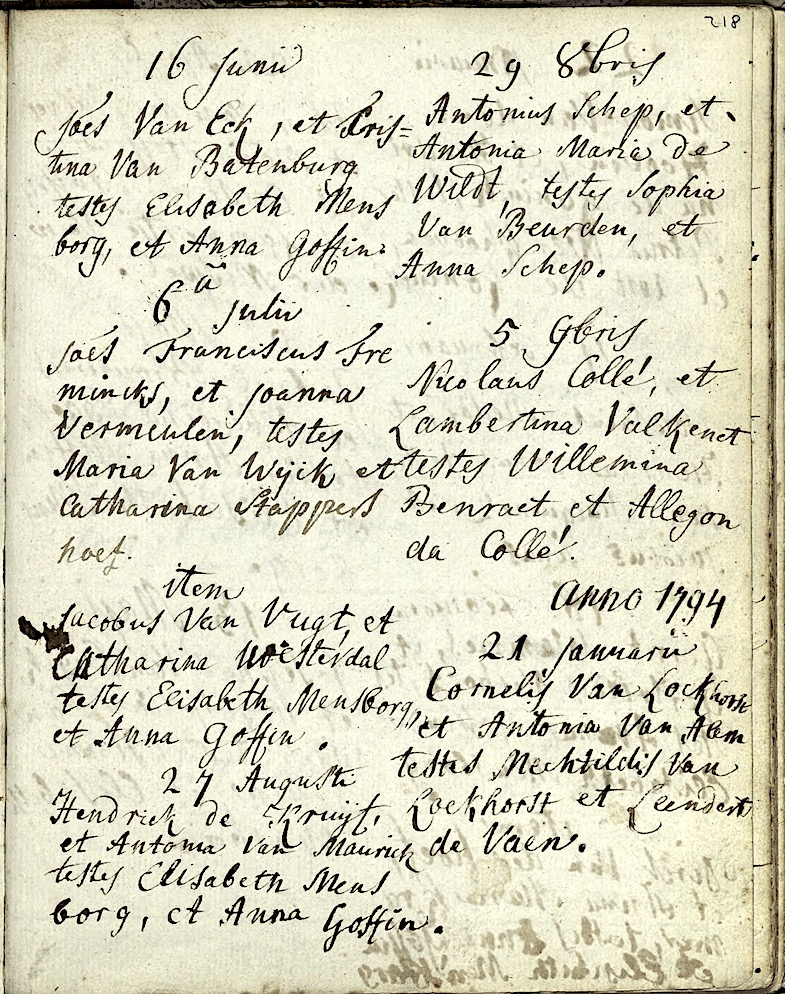 218
16 Junii
Joes Van Eck, et Cris=
tina Van Batenburg
testes Elisabeth Mens
borg, et Anna Goffin.
6ta Julii
Joes Franciscus Fre
mincks, et Joanna
Vermeulen, testes
Maria Van Wijck et
Catharina Stappers
hoef.
item
Jacobus Van Vugt, et
Catharina Woesterdal
testes Elisabeth Mensborg,
et Anna Goffin.
27 Augusti
Hendrick de Kruijf,
et Antonia Van Maurick
testes Elisabeth Mens
borg, et Anna Goffin.
29 8bris
Antonius Schep, et
Antonia Maria de
Wildt, testes Sophia
Van Beurden, et
Anna Schep.
5 9bris
Nicolaus Collé, et
Lambertina Valkenet
testes Willemina
Benraet et Allegon
da Collé.
Anno 1794
21 Januarii
Cornelis Van Lockhorst
et Antonia Van Alem
testes Mechtildis Van
Lockhorst et Leendert
de Vaen.